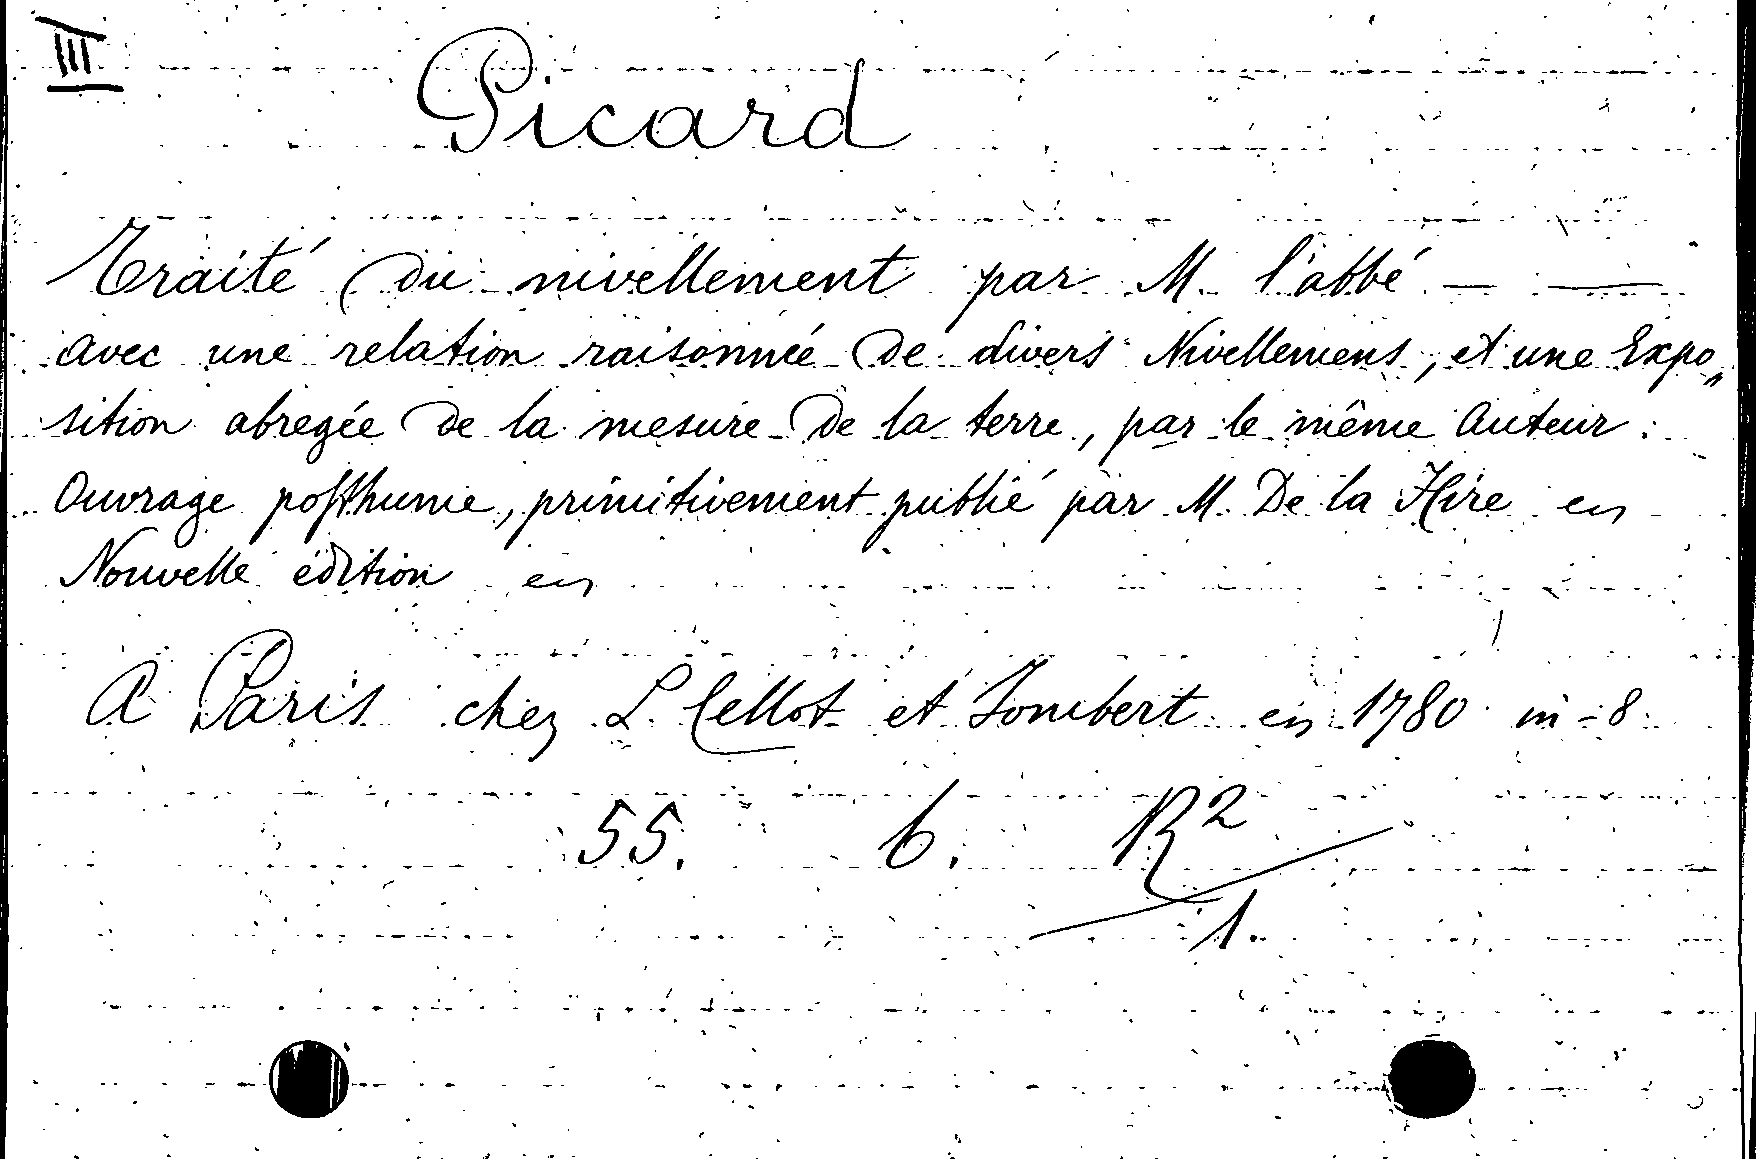 III
Picard
Traité du nivellement par M. l'abbé — —
avec une relation raisonnée de divers Nivellemens, et une Expo„
sition abregée de la mesure de la terre, par le même Auteur.
Ouvrage posthume, primitivement publié par M. De la Hire en
Nouvelle édition en
A Paris chez L. Cellot et Jombert en 1780 in-8
55. 6. R2
1.